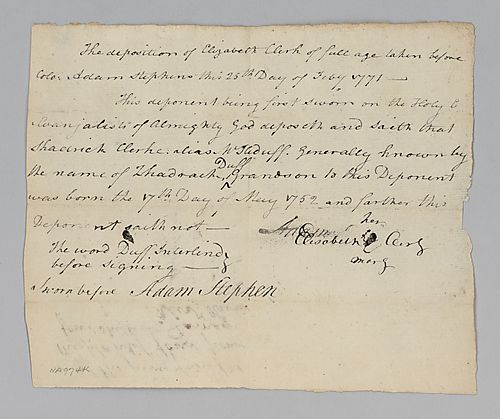 The deposition of Elizabeth Clerk of full age taken before
Colo. Adam Stephens this 25th Day of Feby 1771 —
This deponent being first sworn on the Holy E
Evanjalists of Almighty God deposeth and saith that
Shadrick Clerke: alias McDuff. Generally known by
the name of Zhadrach Duff, Grandson to this Deponent
was born the 17th Day of May 1752 and farther this
Deponent saith not —
her
Elisabeth Clerg
merg
The word Duff Interlind
before Signing —
Sworn before Adam Stephen